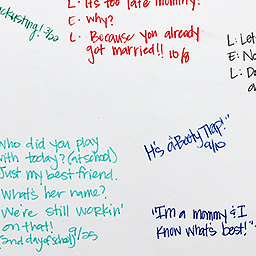 L: It's too late mommy!
E: why?
L: Because you already
got married!! 10/8
L: Let
E: No
L: Do
who did you play
with today? (at school)
Just my best friend.
What's her name?
We're still workin'
on that!
(2nd day of school) 9/25
"It's a Booty Trap!"
9/10
"I'm a mommy & I
know what's best!"